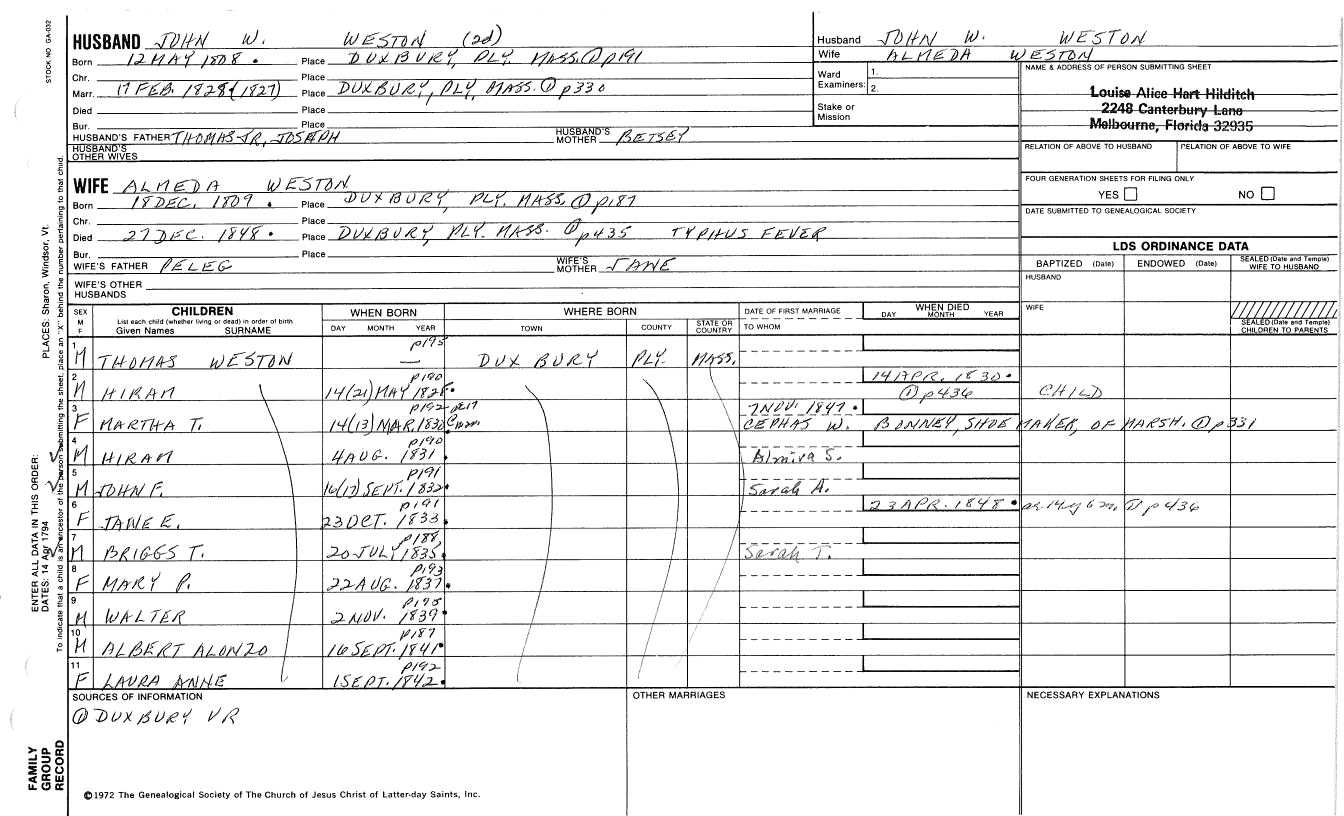 STOCK NO GA-032
HUSBAND JOHN W. WESTON (2d)
Born 12 MAY 1808. Place DUXBURY, PLY. MASS. ① p191
Chr. Place
Marr. 17 FEB. 1828 (1827) Place DUXBURY, PLY, MASS. ① p330
Died Place
Bur. Place
HUSBAND'S FATHER THOMAS JR, JOSEPH HUSBAND'S MOTHER BETSEY
HUSBAND'S OTHER WIVES
WIFE ALMEDA WESTON
Born 18 DEC. 1809. Place DUXBURY, PLY. MASS. ① p187
Chr. Place
Died 27 DEC. 1848. Place DUXBURY, PLY. MASS. ① p435 TYPHUS FEVER
Bur. Place
WIFE'S FATHER PELEG WIFE'S MOTHER JANE
WIFE'S OTHER HUSBANDS
Husband JOHN W. WESTON
Wife ALMEDA WESTON
Ward Examiners: 1. 2.
Stake or Mission
NAME & ADDRESS OF PERSON SUBMITTING SHEET
Louise Alice Hart Hilditch
2248 Canterbury Lane
Melbourne, Florida 32935
RELATION OF ABOVE TO HUSBAND RELATION OF ABOVE TO WIFE
FOUR GENERATION SHEETS FOR FILING ONLY
YES NO
DATE SUBMITTED TO GENEALOGICAL SOCIETY
LDS ORDINANCE DATA
BAPTIZED (Date) ENDOWED (Date) SEALED (Date and Temple) WIFE TO HUSBAND
HUSBAND
WIFE
SEALED (Date and Temple) CHILDREN TO PARENTS
SEX M F CHILDREN WHEN BORN WHERE BORN DATE OF FIRST MARRIAGE WHEN DIED
List each child (whether living or dead) in order of birth
Given Names SURNAME DAY MONTH YEAR TOWN COUNTY STATE OR COUNTRY TO WHOM DAY MONTH YEAR
p195
1 M THOMAS WESTON — DUXBURY PLY. MASS.
p190 14 APR. 1830.
2 M HIRAM 14(21) MAY 1828. ① p436 CHILD
p192 7 NOV. 1847.
3 F MARTHA T. 14(13) MAR. 1830 CEPHAS W. BONNEY, SHOE MAKER, OF MARSH. ① p331
p190
4 M HIRAM 4 AUG. 1831 Almira S.
p191
5 M JOHN F. 16(17) SEPT. 1832. Sarah A.
p191 23 APR. 1848. ae. 14 y 6 m, ① p436
6 F JANE E. 23 OCT. 1833.
p188
7 M BRIGGS T. 20 JULY 1835. Sarah T.
p193
8 F MARY P. 22 AUG. 1837.
p195
9 M WALTER 2 NOV. 1839.
p187
10 M ALBERT ALONZO 16 SEPT. 1841.
p192
11 F LAURA ANNE 1 SEPT. 1842.
SOURCES OF INFORMATION OTHER MARRIAGES NECESSARY EXPLANATIONS
① DUXBURY VR
©1972 The Genealogical Society of The Church of Jesus Christ of Latter-day Saints, Inc.
FAMILY GROUP RECORD
ENTER ALL DATA IN THIS ORDER:
DATES: 14 Apr 1794
PLACES: Sharon, Windsor, Vt.
To indicate that a child is an ancestor of the person submitting the sheet, place an "X" behind the number pertaining to that child.